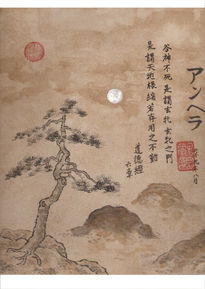 アンヘラ
谷神不死 是謂玄牝 玄牝之門
是謂天地根 綿綿若存 用之不勤
道德經
六章